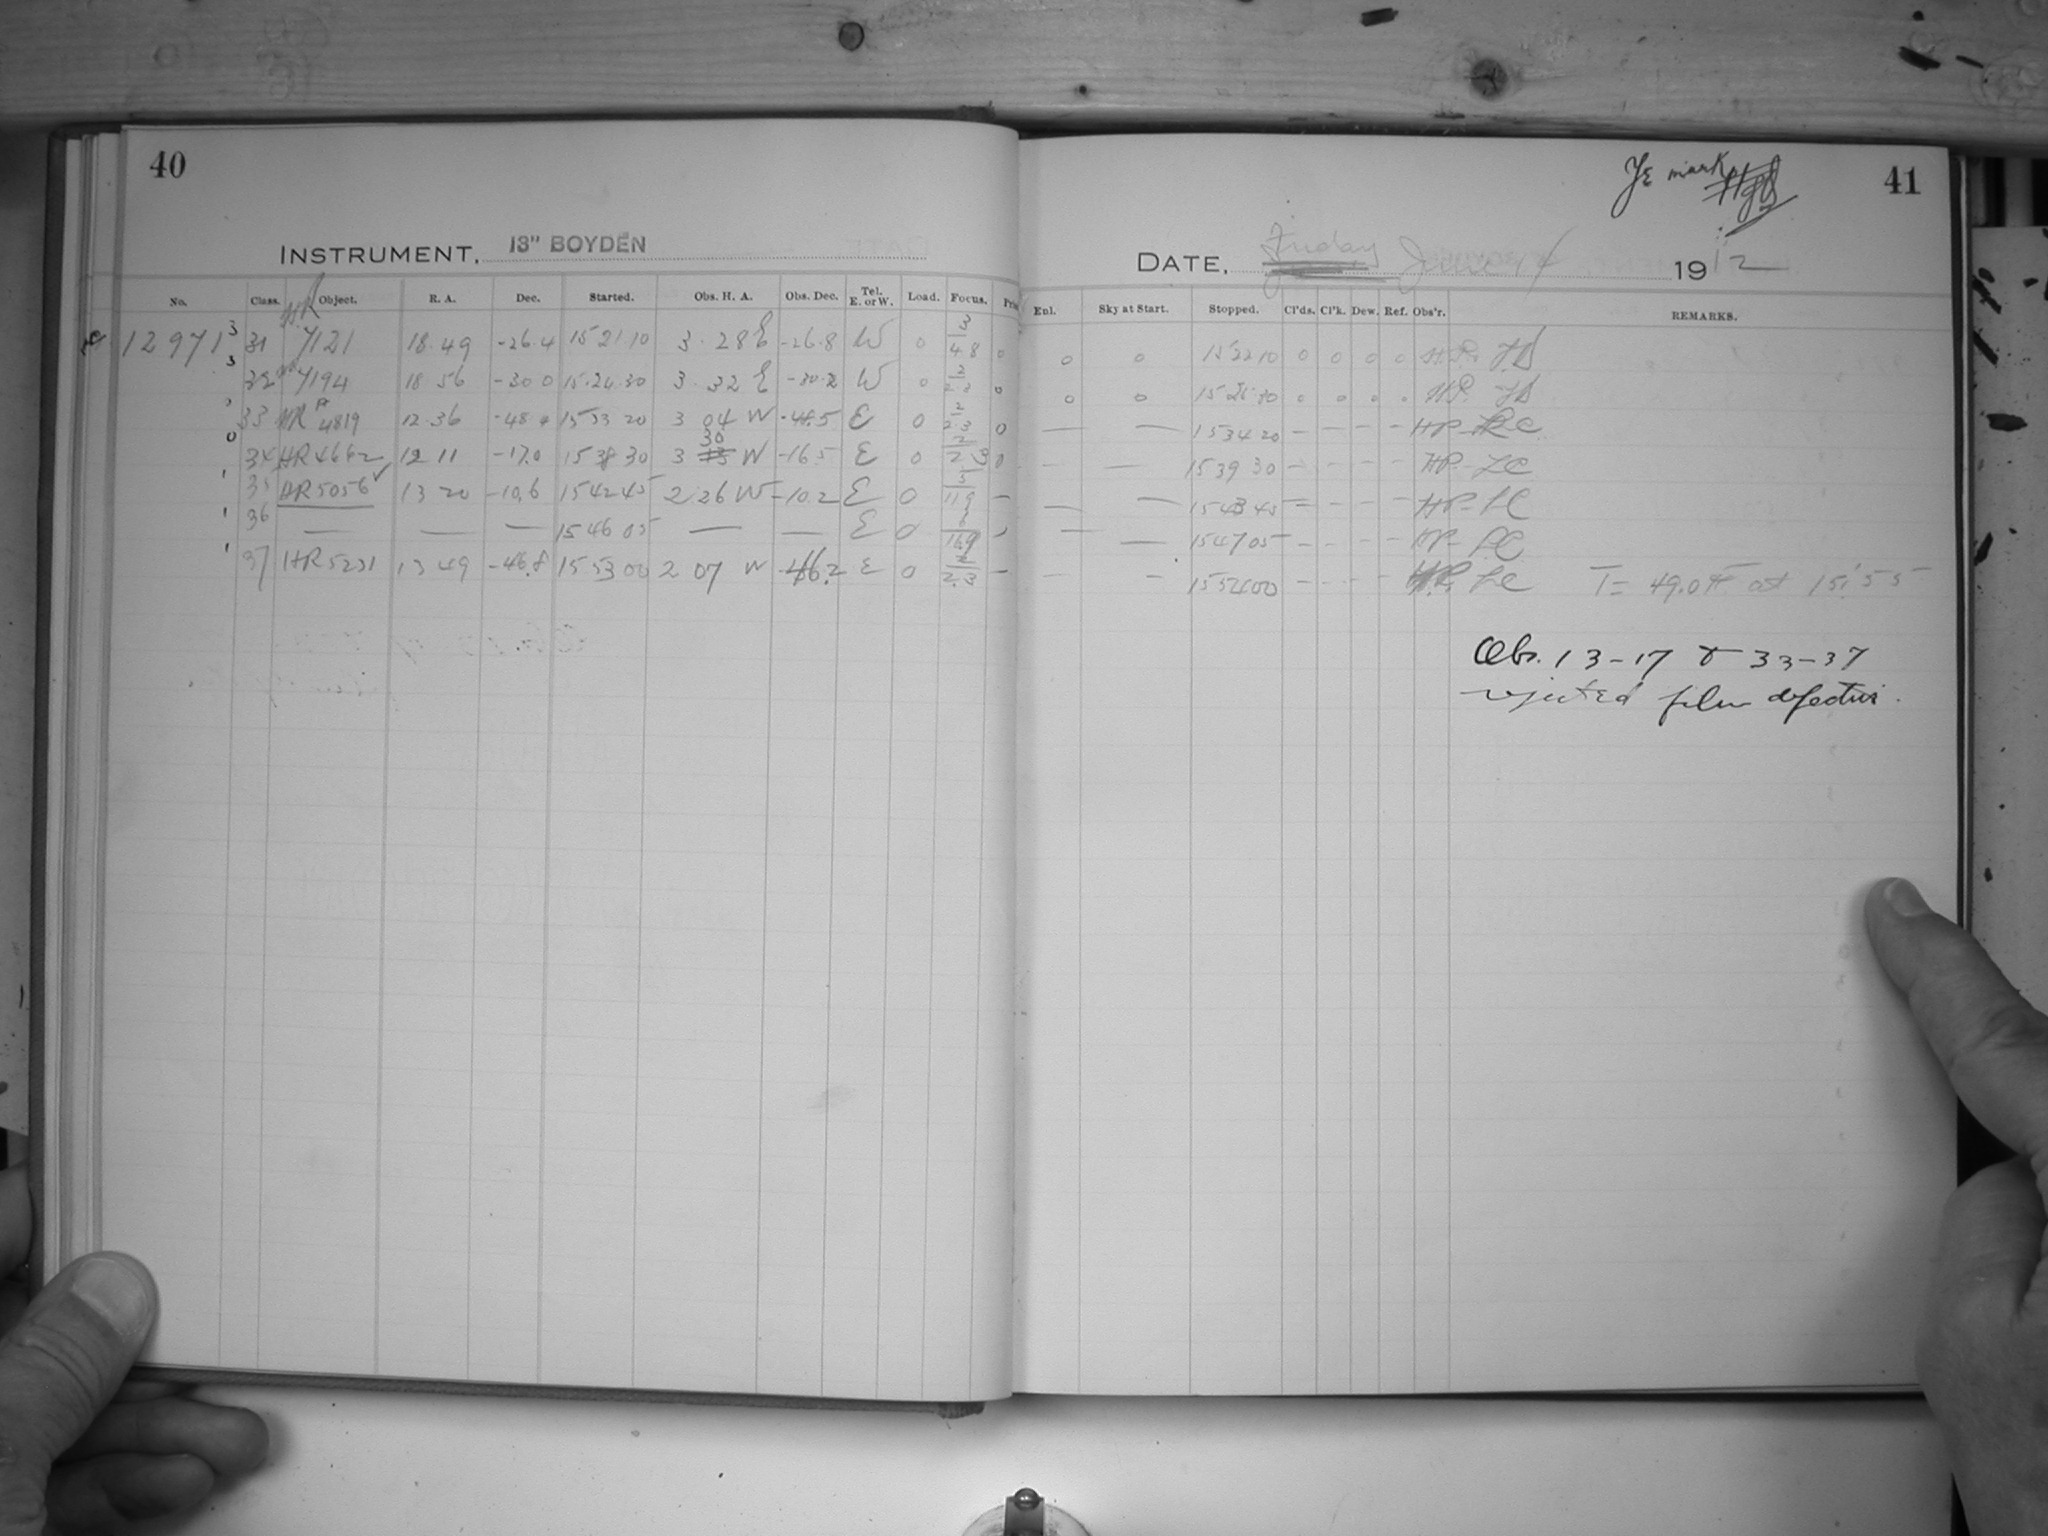 40
INSTRUMENT, 13" BOYDEN
No. Class. Object. R. A. Dec. Started. Obs. H. A. Obs. Dec. Tel. E. or W. Load. Focus.
HR
12971 3 31 7121 18.49 -26.4 15 21 10 3.28 E -26.8 W 0 3/4.8 0
3 32 7194 18 56 -30 0 15.24.30 3 32 E -30.2 W 0 2/2.2 0
33 HR 4819 12.36 -48 15 33 20 3 04 W -48.5 E 0 2/2.3 0
0 34 HR 4662 12 11 -17.0 15 38 30 3 30 W -16 5 E 0 2/2.3 0
' 35 HR 5056 ✓ 13 20 -10.6 15 42 45 2 26 W -10.2 E 0 —
' 36 — — — 15 46 05 — — E 0
' 37 HR 5231 13 49 -46.8 15 53 00 2 07 W -46.2 E 0 2.3 —
Ye mark
41
DATE, Friday June 1912
Enl. Sky at Start. Stopped. Cl'ds. Cl'k. Dew. Ref. Obs'r. REMARKS.
0 0 15 22 10 0 0 0 0 H.P. JD
0 0 15 25 30 0 0 0 0 H.P. JD
— — 15 34 20 — — — — HP
— — 15 39 30 — — — — HP-LC
— — 15 43 45 — — — — HP-LC
— — 15 47 05 — — — — HP-LC
— — 15 54 00 — — — — H.P. LC T = 49.0 at 15 55
Obs. 13-17 & 33-37
rejected film defective.